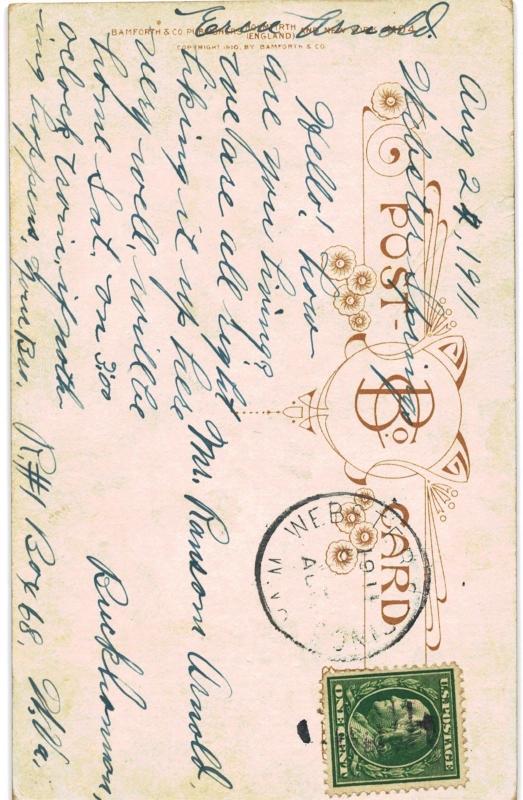 BAMFORTH & CO PUBLISHERS HOLMFIRTH (ENGLAND) AND NEW YORK
COPYRIGHT 1910, BY BAMFORTH & CO
POST-CARD
B & Co
Aug 24, 1911
Webster Springs
Hello! how
are you living?
we are all right
liking it up here
very well, will be
home Sat. on 3:00
oclock train, if noth
ing happens. your Bu.
Arnold.
Mr. Ransom Arnold.
Buckhannon,
R. #1 Box 68. W.Va.
WEBSTER SPRINGS
W.VA.
1911
U.S. POSTAGE
ONE CENT